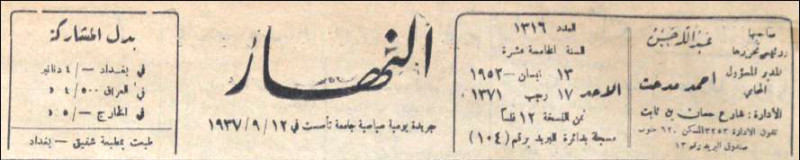 صاحبها
ورئيس تحريرها
عبد الله حسن
المدير المسؤول
المحامي
احمد مدحت
الادارة: شارع حسان بن ثابت
تلفون الادارة ٣٢٥٣ المسكن ٦٢٠ جنوب
صندوق البريد رقم ١٣
العدد ١٣١٦
السنة الخامسة عشرة
١٣ نيسان - ١٩٥٢
الاحد
١٧ رجب ١٣٧١
ثمن النسخة ١٢ فلساً
مسجلة بدائرة البريد برقم (١٠٤)
النهار
جريدة يومية سياسية جامعة تأسست في ١٩٣٧/٩/١٢
بدل المشاركة
في بغداد -/٤ دنانير
في العراق ٤/٥٠٠ د
في الخارج -/٥ د
طبعت بمطبعة شفيق - بغداد